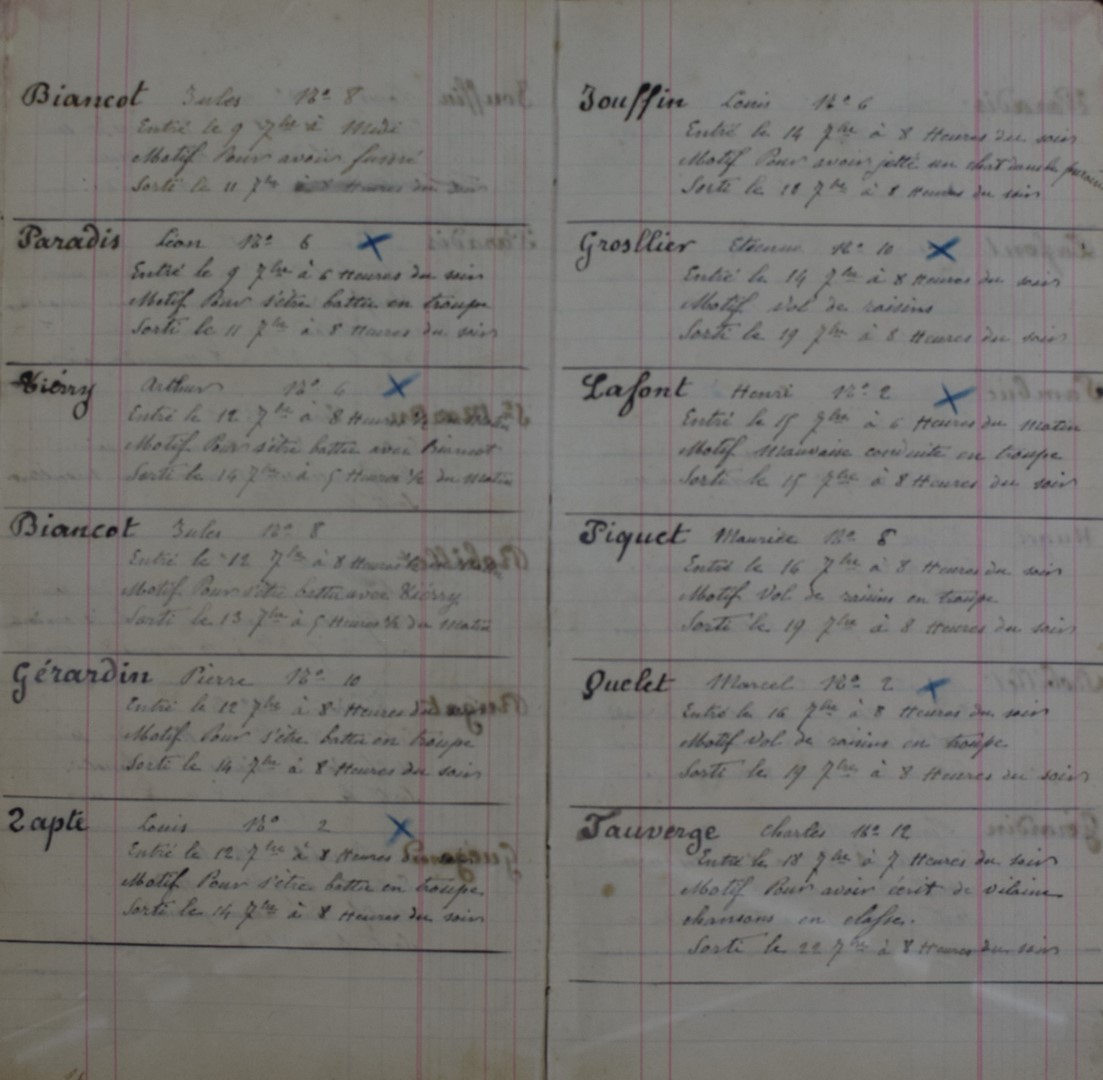 Biancot Jules N° 8
Entré le 9 7bre à Midi
Motif Pour avoir fumé
Sorti le 11 7bre à 8 Heures du soir
Paradis Léon N° 6
Entré le 9 7bre à 6 Heures du soir
Motif Pour s'être battu en troupe
Sorti le 11 7bre à 8 Heures du soir
Kiérry Arthur N° 6
Entré le 12 7bre à 8 Heures
Motif Pour s'être battu avec Biancot
Sorti le 14 7bre à 5 Heures ½ du Matin
Biancot Jules N° 8
Entré le 12 7bre à 8 Heures
Motif Pour s'être battu avec Kiérry
Sorti le 13 7bre à 5 Heures ½ du Matin
Gérardin Pierre N° 10
Entré le 12 7bre à 8 Heures du
Motif Pour s'être battu en troupe
Sorti le 14 7bre à 8 Heures du soir
Zapté Louis N° 2
Entré le 12 7bre à 8 Heures
Motif Pour s'être battu en troupe
Sorti le 14 7bre à 8 Heures du soir
Jouffin Louis N° 6
Entré le 14 7bre à 8 Heures du soir
Motif Pour avoir jetté un chat dans le purain
Sorti le 18 7bre à 8 Heures du soir
Grosllier Etienne N° 10
Entré le 14 7bre à 8 Heures du soir
Motif Vol de raisins
Sorti le 19 7bre à 8 Heures du soir
Lafont Henri N° 2
Entré le 15 7bre à 6 Heures du Matin
Motif Mauvaise conduite en troupe
Sorti le 15 7bre à 8 Heures du soir
Piquet Maurice N° 8
Entré le 16 7bre à 8 Heures du soir
Motif Vol de raisins en troupe
Sorti le 19 7bre à 8 Heures du soir
Quelet Marcel N° 2
Entré le 16 7bre à 8 Heures du soir
Motif Vol de raisins en troupe
Sorti le 19 7bre à 8 Heures du soir
Tauverge Charles N° 12
Entré le 18 7bre à 7 Heures du soir
Motif Pour avoir écrit de vilaine
chansons en classe.
Sorti le 22 7bre à 8 Heures du soir